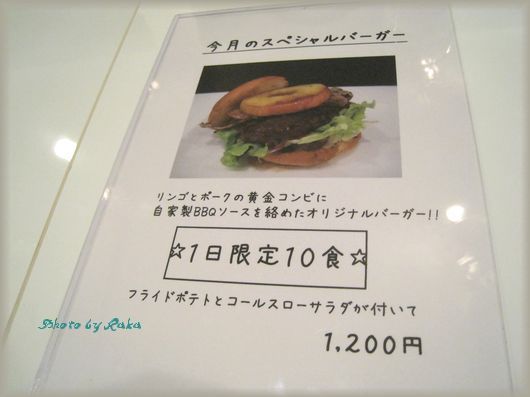 今月のスペシャルバーガー
リンゴとポークの黄金コンビに
自家製BBQソースを絡めたオリジナルバーガー!!
☆1日限定10食☆
フライドポテトとコールスローサラダが付いて
1,200円
Photo by Raka